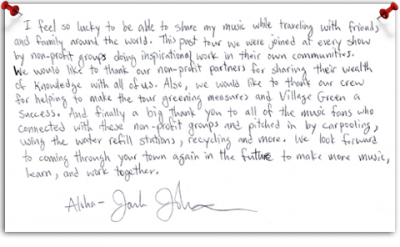 I feel so lucky to be able to share my music while traveling with friends
and family around the world. This past tour we were joined at every show
by non-profit groups doing inspirational work in their own communities.
We would like to thank our non-profit partners for sharing their wealth
of knowledge with all of us. Also, we would like to thank our crew
for helping to make the tour greening measures and Village Green a
success. And finally a big thank you to all of the music fans who
connected with these non-profit groups and pitched in by carpooling,
using the water refill stations, recycling and more. We look forward
to coming through your town again in the future to make more music,
learn, and work together.
Aloha- Jack